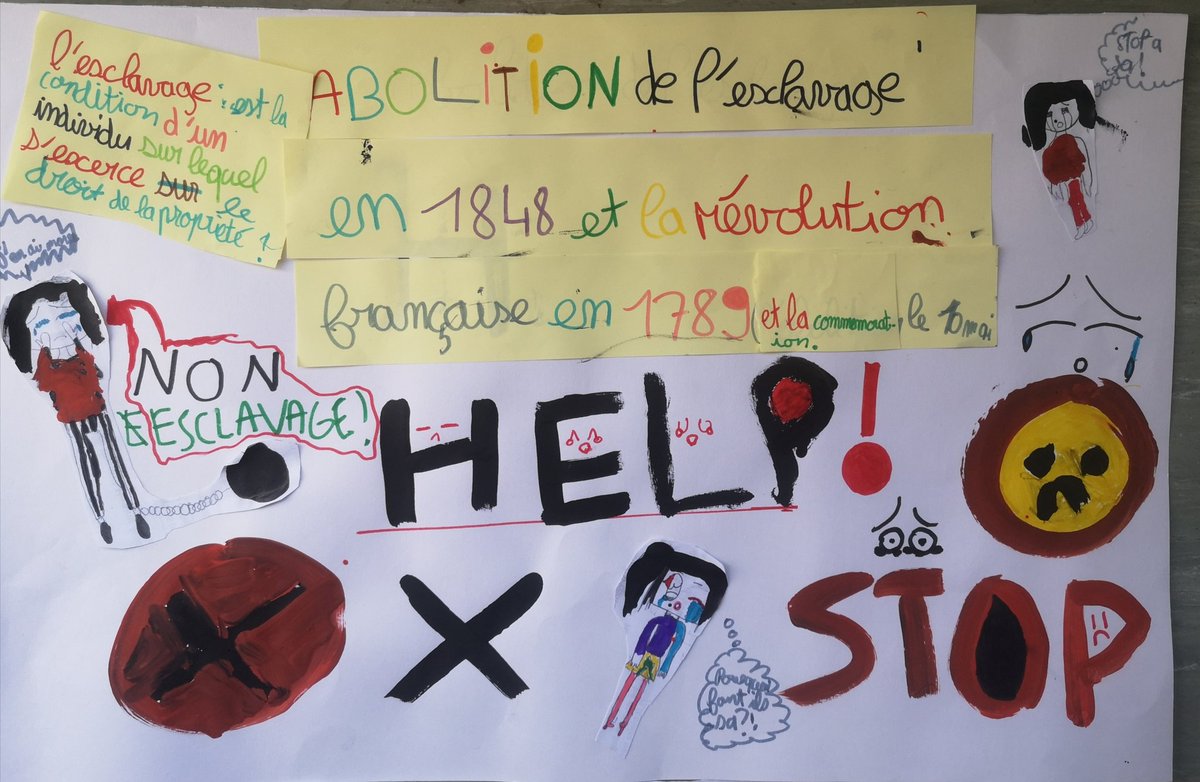 l'esclavage : est la
condition d'un
individu sur lequel
s'excerce sur le
droit de la propriété !
ABOLITION de l'esclavage
en 1848 et la révolution
française en 1789 (et la commemorat-
ion.
le 10 mai
STOP a
ça!
NON
ESCLAVAGE!
HELP!
STOP
Pourquoi
font ils
sa?!